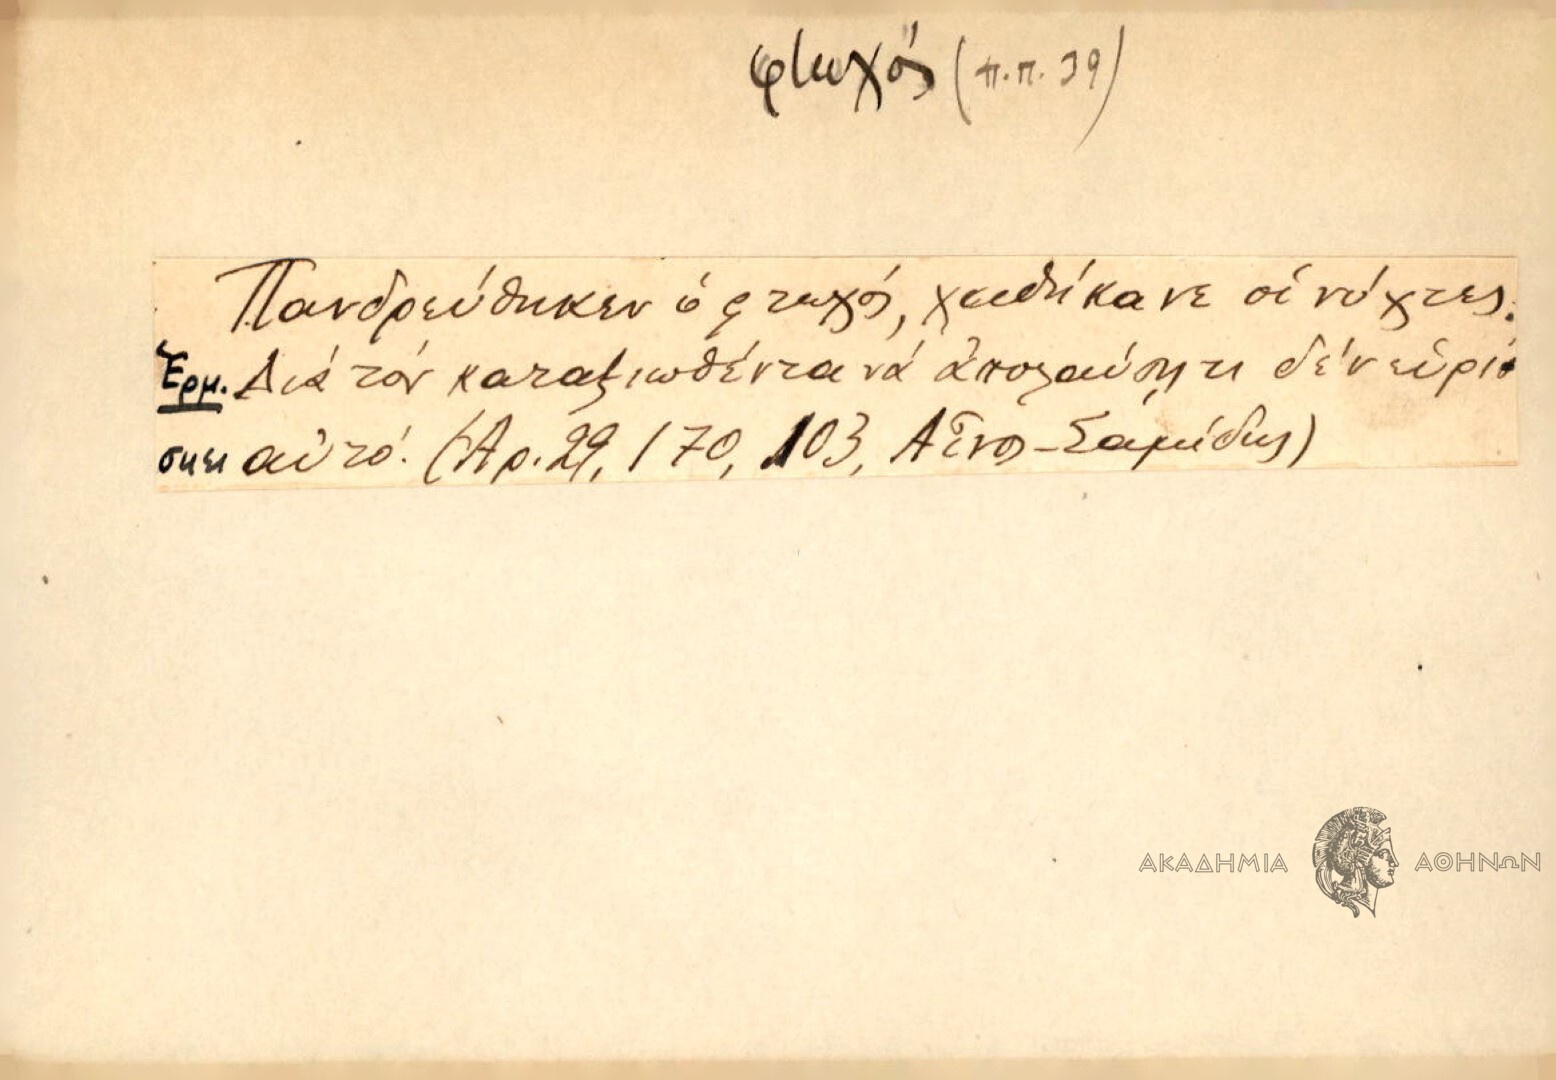 φτωχός (π.π. 39)
Πανδρεύθηκεν ὁ φτωχός, χαθήκανε οἱ νύχτες.
Ἑρμ. Διὰ τὸν καταξιωθέντα νὰ ἀπολαύσῃ τι δὲν εὑρί
σκει αὐτό. (Ἀρ. 29, 170, 103, Αἶνος - Σαμίδης)
ΑΚΑΔΗΜΙΑ ΑΘΗΝΩΝ